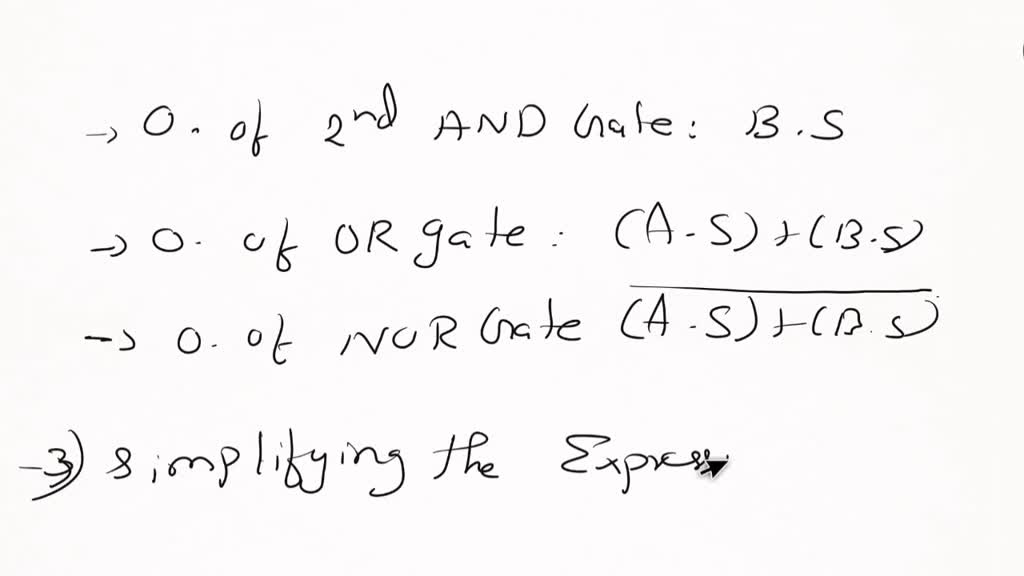 → O. of 2nd AND Gate: B.S
→ O. of OR gate: (A.S)+(B.S)
→ O. of NOR Gate \overline{(A.S)+(B.S)}
→3) simplifying the Express